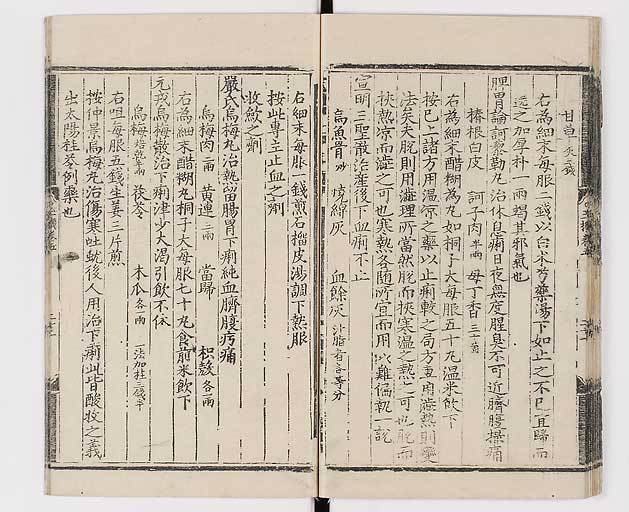 甘草 炙三錢
右為細末每服二錢以白朮芍藥湯下如止之不已宜歸而
送之加厚朴一兩竭其邪氣也
脾胃論訶黎勒丸治休息痢日夜無度腥臭不可近臍腹撮痛
椿根白皮 訶子肉半兩 母丁香三十箇
右為細末醋糊為丸如桐子大每服五十丸溫米飲下
按已上諸方用溫涼之藥以止痢較之局方專用澁熱則變
法矣夫脫則用澁理所當然脫而挾寒溫之熱之可也脫而
挾熱涼而澁之可也寒熱各隨所宜而用以難偏執一說
宣明三聖散治產後下血痢不止
烏魚骨炒 燒綿灰 血餘灰汁脂者各等分
右細末每服一錢煎石榴皮湯調下熱服
按此專主止血之劑
收歛之劑
嚴氏烏梅丸治熱留腸胃下痢純血臍腹㽲痛
烏梅肉二兩 黃連三兩 當歸 枳殼各兩
右為細末醋糊丸桐子大每服七十丸食前米飲下
元戎烏梅散治下痢津少大渴引飲不休
烏梅 茯苓 木瓜各一兩 一法加桂三錢半
右㕮每服五錢生姜三片煎
按仲景烏梅丸治傷寒吐蚘後人用治下痢此皆酸收之義
出太陽桂苓例藥也